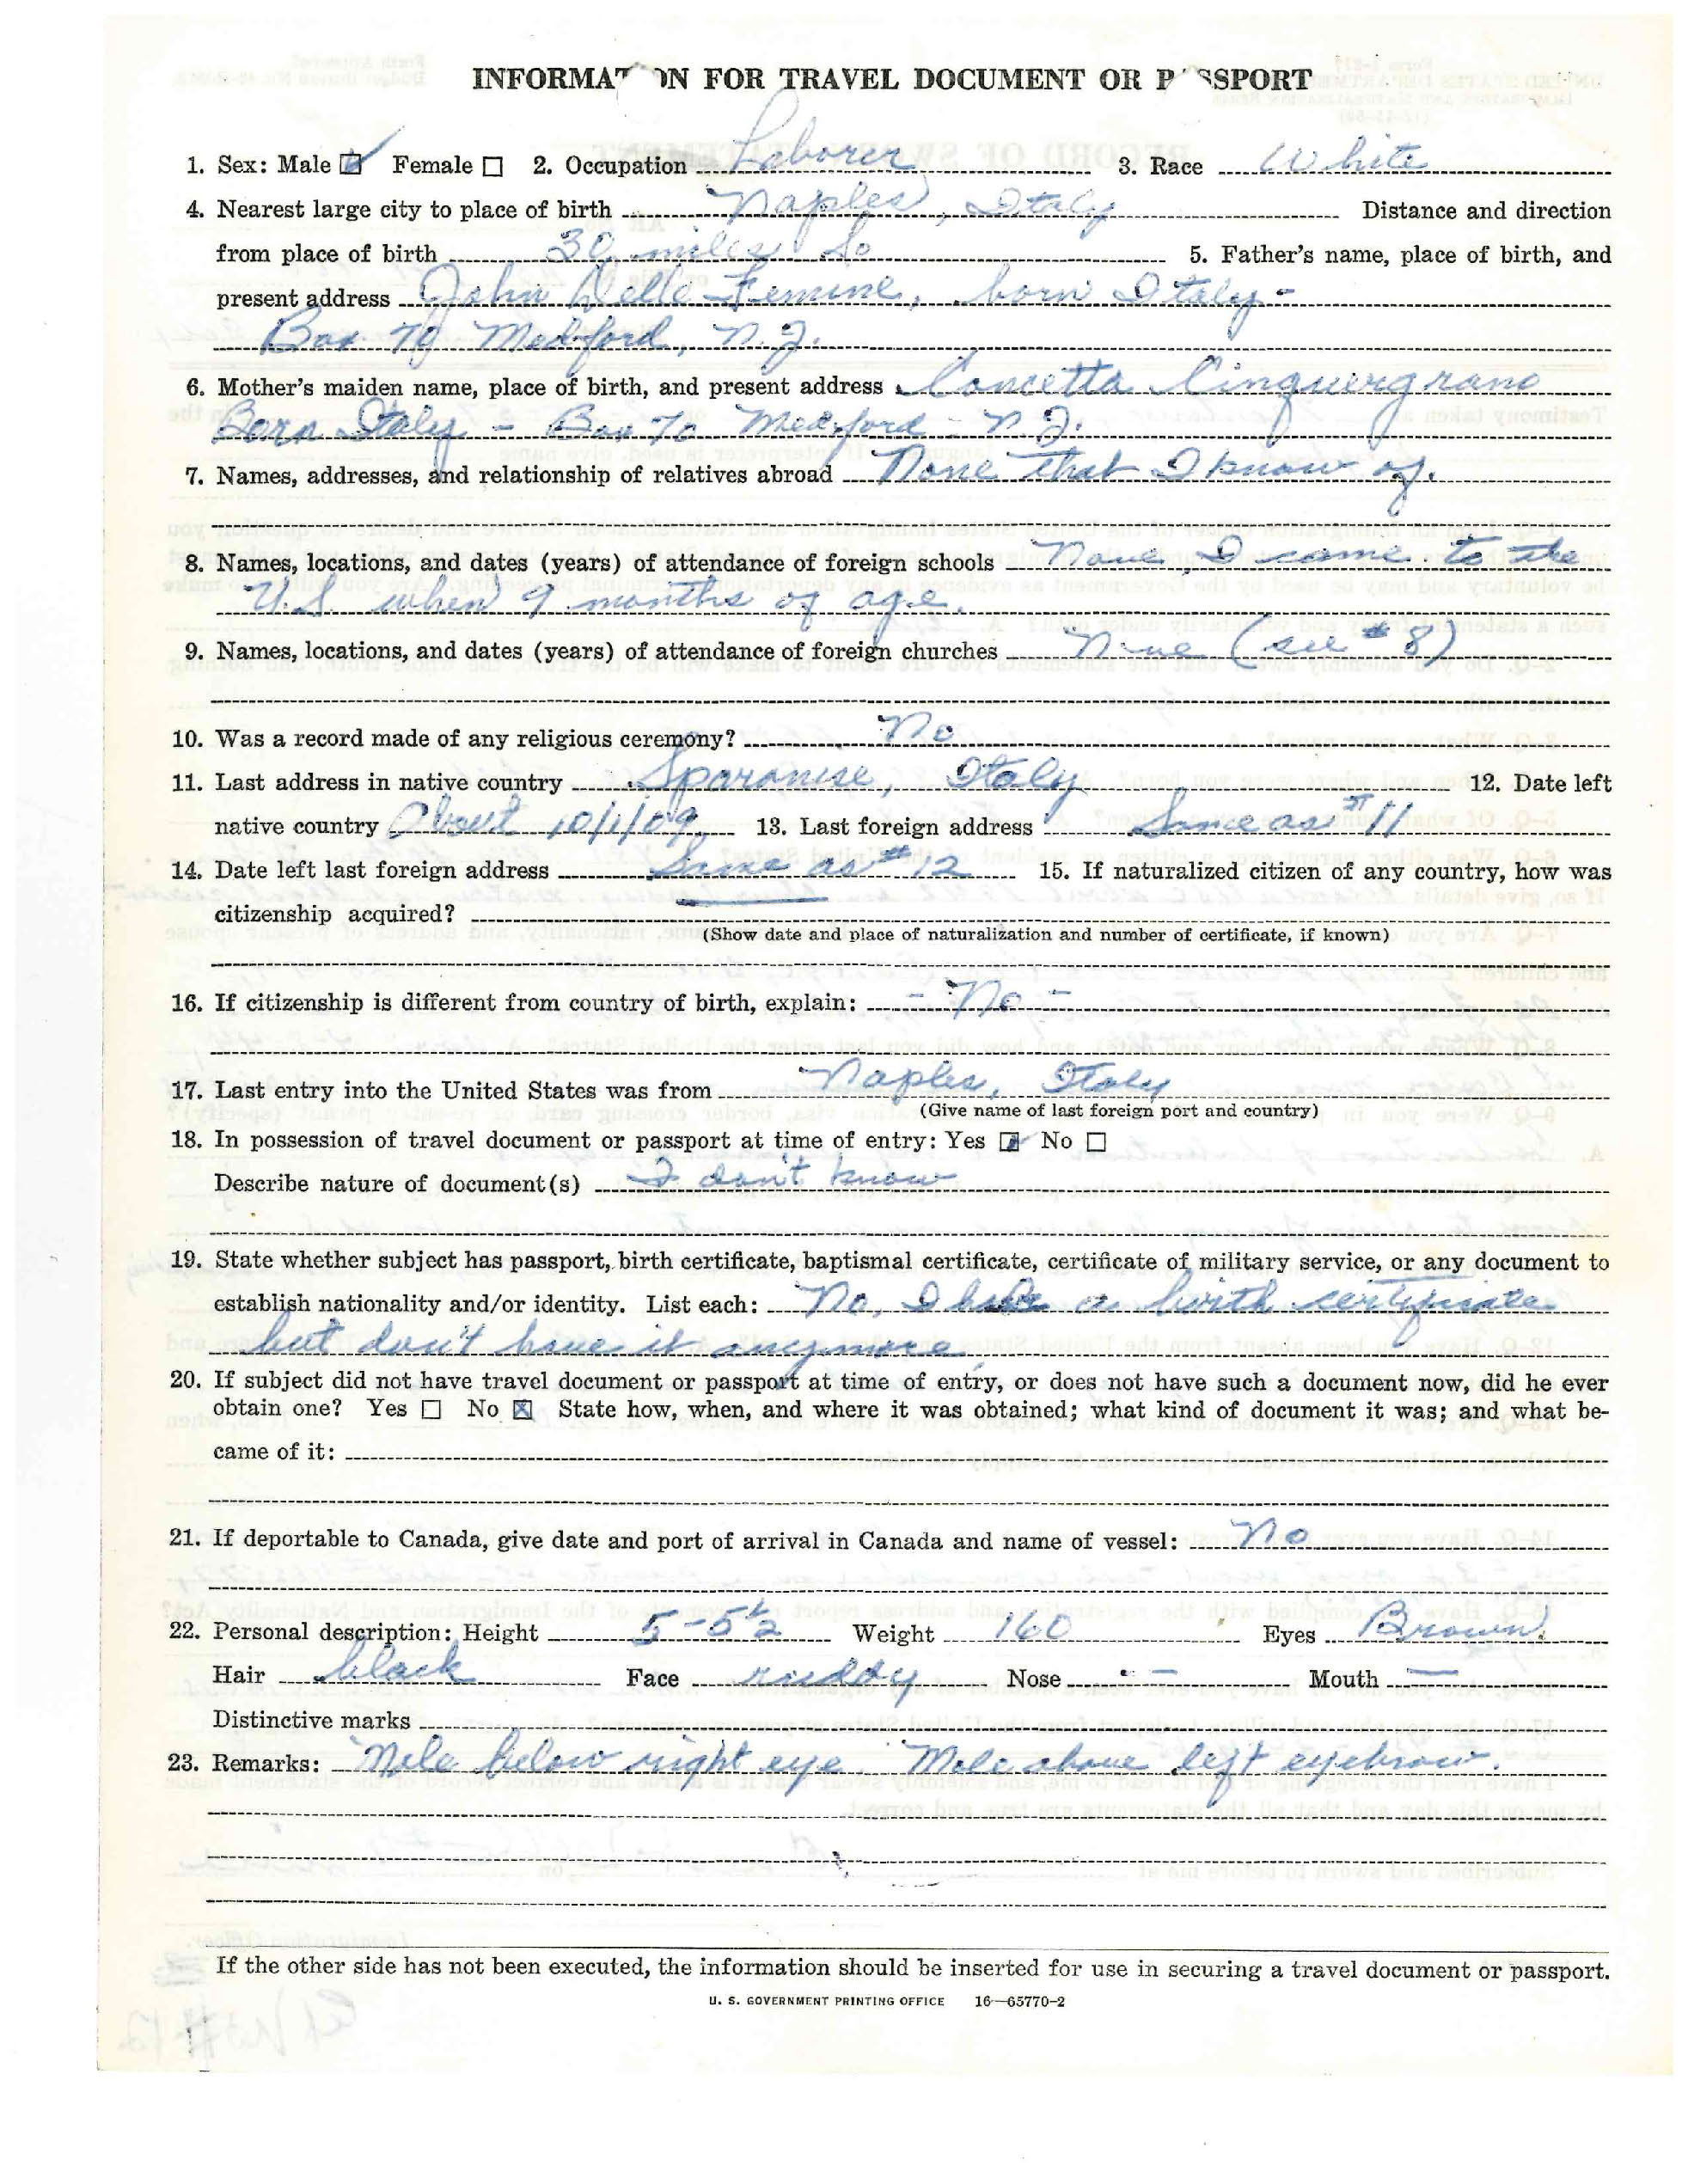 INFORMATION FOR TRAVEL DOCUMENT OR PASSPORT
1. Sex: Male ☑ Female ☐ 2. Occupation Laborer 3. Race White
4. Nearest large city to place of birth Naples, Italy Distance and direction
from place of birth 30 miles So 5. Father's name, place of birth, and
present address John Delle Femine, born Italy -
Box 70 Medford, N.J.
6. Mother's maiden name, place of birth, and present address Concetta Cinquegrano
Born Italy - Box 70 Medford - N.J.
7. Names, addresses, and relationship of relatives abroad None that I know of.
8. Names, locations, and dates (years) of attendance of foreign schools None, I came to the
U.S. when 9 months of age.
9. Names, locations, and dates (years) of attendance of foreign churches None (see #8)
10. Was a record made of any religious ceremony? No
11. Last address in native country Sparanise, Italy 12. Date left
native country About 10/1/09 13. Last foreign address Same as #11
14. Date left last foreign address Same as #12 15. If naturalized citizen of any country, how was
citizenship acquired? —
(Show date and place of naturalization and number of certificate, if known)
16. If citizenship is different from country of birth, explain: - No -
17. Last entry into the United States was from Naples, Italy
(Give name of last foreign port and country)
18. In possession of travel document or passport at time of entry: Yes ☑ No ☐
Describe nature of document(s) I don't know
19. State whether subject has passport, birth certificate, baptismal certificate, certificate of military service, or any document to
establish nationality and/or identity. List each: No, I had a birth certificate
but don't have it anymore
20. If subject did not have travel document or passport at time of entry, or does not have such a document now, did he ever
obtain one? Yes ☐ No ☒ State how, when, and where it was obtained; what kind of document it was; and what be-
came of it:
21. If deportable to Canada, give date and port of arrival in Canada and name of vessel: No
22. Personal description: Height 5-5½ Weight 160 Eyes Brown
Hair black Face ruddy Nose - Mouth -
Distinctive marks
23. Remarks: Mole below right eye. Mole above left eyebrow.
If the other side has not been executed, the information should be inserted for use in securing a travel document or passport.
U. S. GOVERNMENT PRINTING OFFICE 16—65770-2